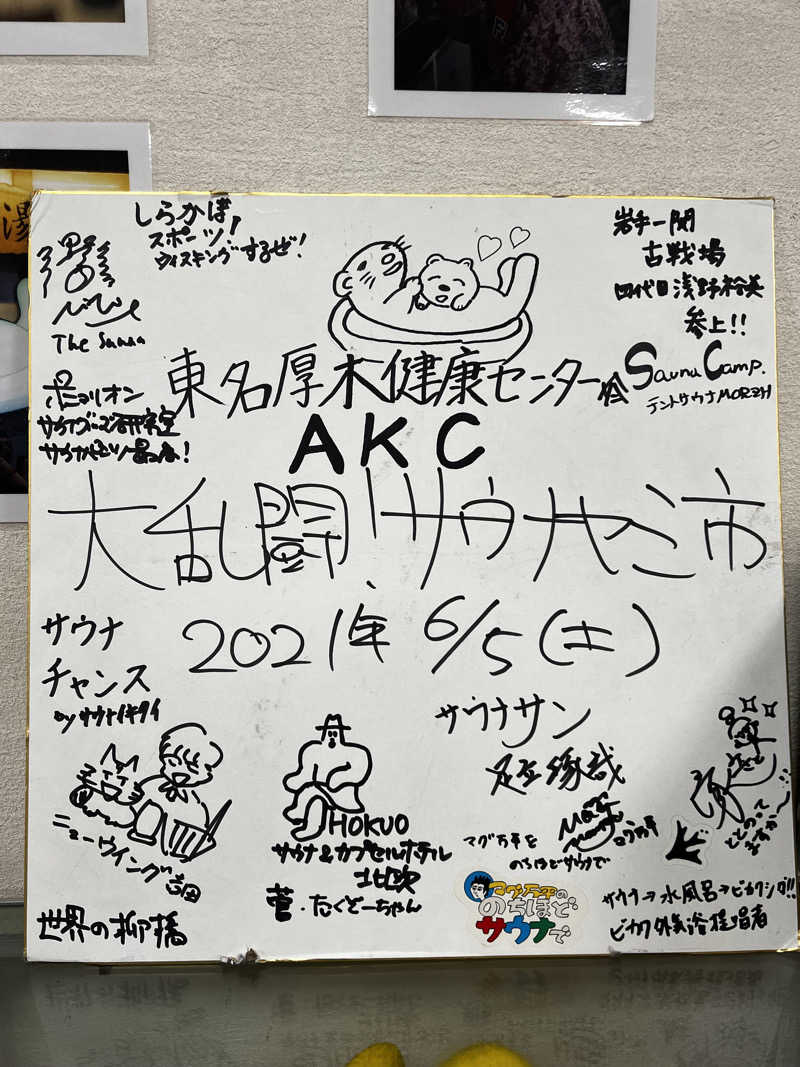 湯
しらかば
スポーツ!
ウィスキングするぜ!
The Sauna
岩手一関
古戦場
四代目浅野裕美
参上!!
東名厚木健康センター
Sauna Camp.
テントサウナMORZH
AKC
サウナグッズ研究室
大乱闘!サウナヤミ市
2021年 6/5(土)
サウナ
チャンス
by サウナイキタイ
サウナサン
足立琢哉
ニューウイング吉田
HOKUO
サウナ&カプセルホテル
北欧
菅・たくぞーちゃん
マグ万平を
のちほどサウナで
マグ万平の
のちほど
サウナで
ととのって
ますかー
サウナ→水風呂→ピカリング!!
ピカリ外気浴提唱者
世界の柳橋